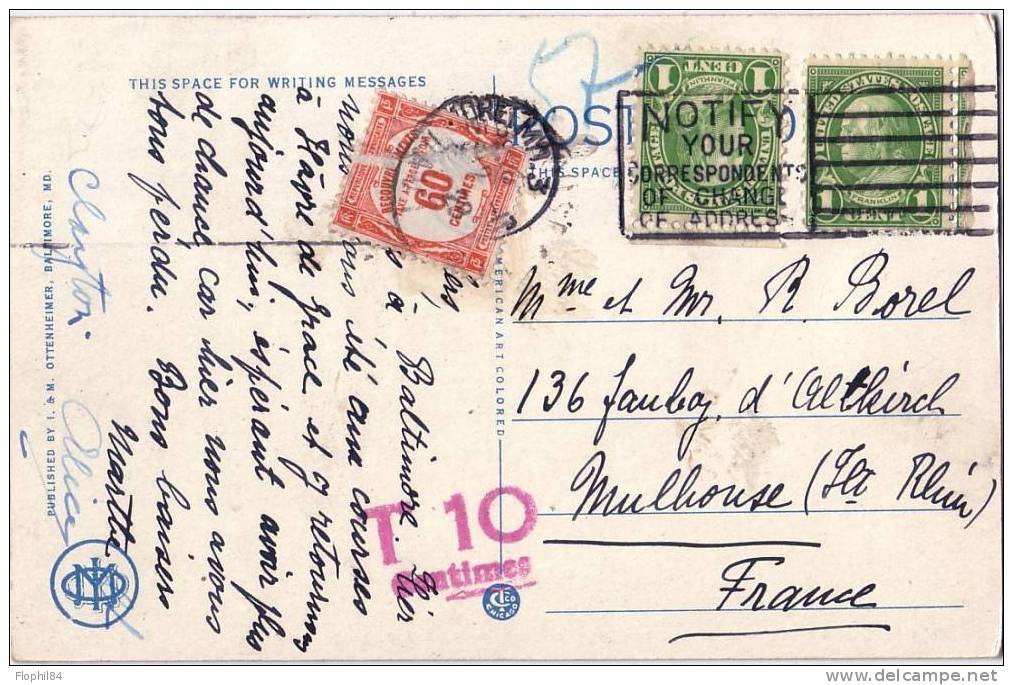 THIS SPACE FOR WRITING MESSAGES
Baltimore. Hier
nous avons été aux courses
à Hâvre de Grace et y retournons
aujourd'hui, espérant avoir plus
de chance, car hier nous avons
tous perdu. Bons baisers
Marthe
Clayton.
Alice
PUBLISHED BY I. & M. OTTENHEIMER, BALTIMORE, MD.
AMERICAN ART COLORED
C.T. CO
CHICAGO
POST
THIS SPACE
RECOUVREMENTS
TAXE A PERCEVOIR
60
CENTIMES
T 10
Centimes
1 CENT 1
FRANKLIN
NOTIFY
YOUR
CORRESPONDENTS
OF CHANGE
OF ADDRESS
UNITED STATES
FRANKLIN
1 CENT 1
Mme et Mr. R. Borel
136 faubg. d'Altkirch
Mulhouse (Ht Rhin)
France
Flophil84
delcampe.net